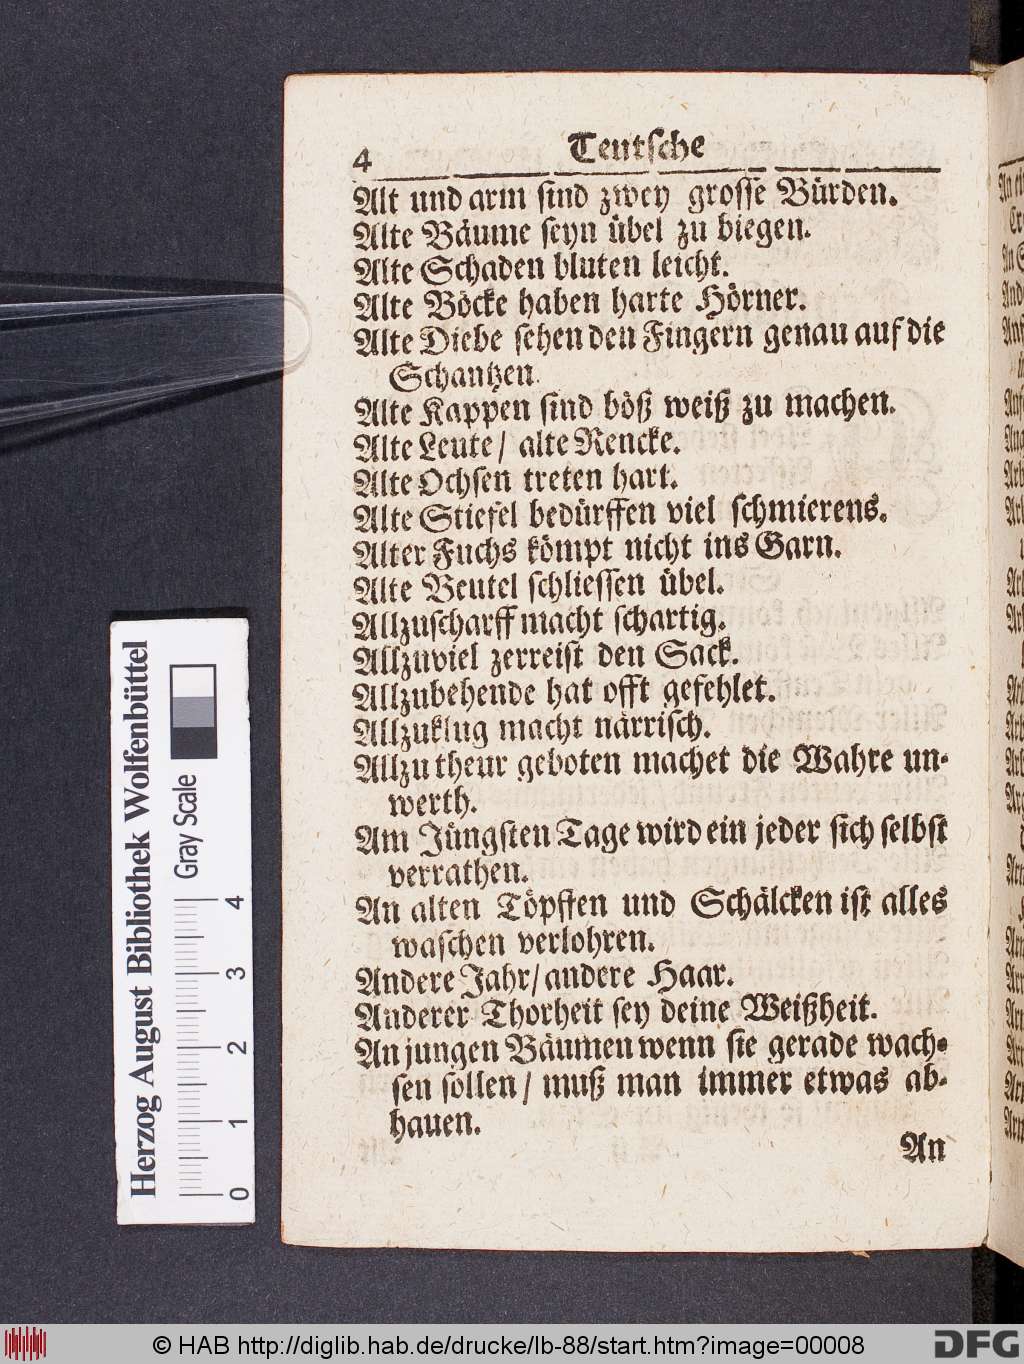 4 Teutsche
Alt und arm sind zwey grosse Bürden.
Alte Bäume seyn übel zu biegen.
Alte Schaden bluten leicht.
Alte Böcke haben harte Hörner.
Alte Diebe sehen den Fingern genau auf die
Schantzen
Alte Kappen sind böß weiß zu machen.
Alte Leute / alte Rencke.
Alte Ochsen treten hart.
Alte Stiefel bedürffen viel schmierens.
Alter Fuchs kömpt nicht ins Garn.
Alte Beutel schliessen übel.
Allzuscharff macht schartig.
Allzuviel zerreist den Sack.
Allzubehende hat offt gefehlet.
Allzuklug macht närrisch.
Allzu theur geboten machet die Wahre un-
werth.
Am Jüngsten Tage wird ein jeder sich selbst
verrathen.
An alten Töpffen und Schälcken ist alles
waschen verlohren.
Andere Jahr / andere Haar.
Anderer Thorheit sey deine Weißheit.
An jungen Bäumen wenn sie gerade wach-
sen sollen / muß man immer etwas ab-
hauen.
An
Herzog August Bibliothek Wolfenbüttel
Gray Scale
0 1 2 3 4
© HAB http://diglib.hab.de/drucke/lb-88/start.htm?image=00008
DFG